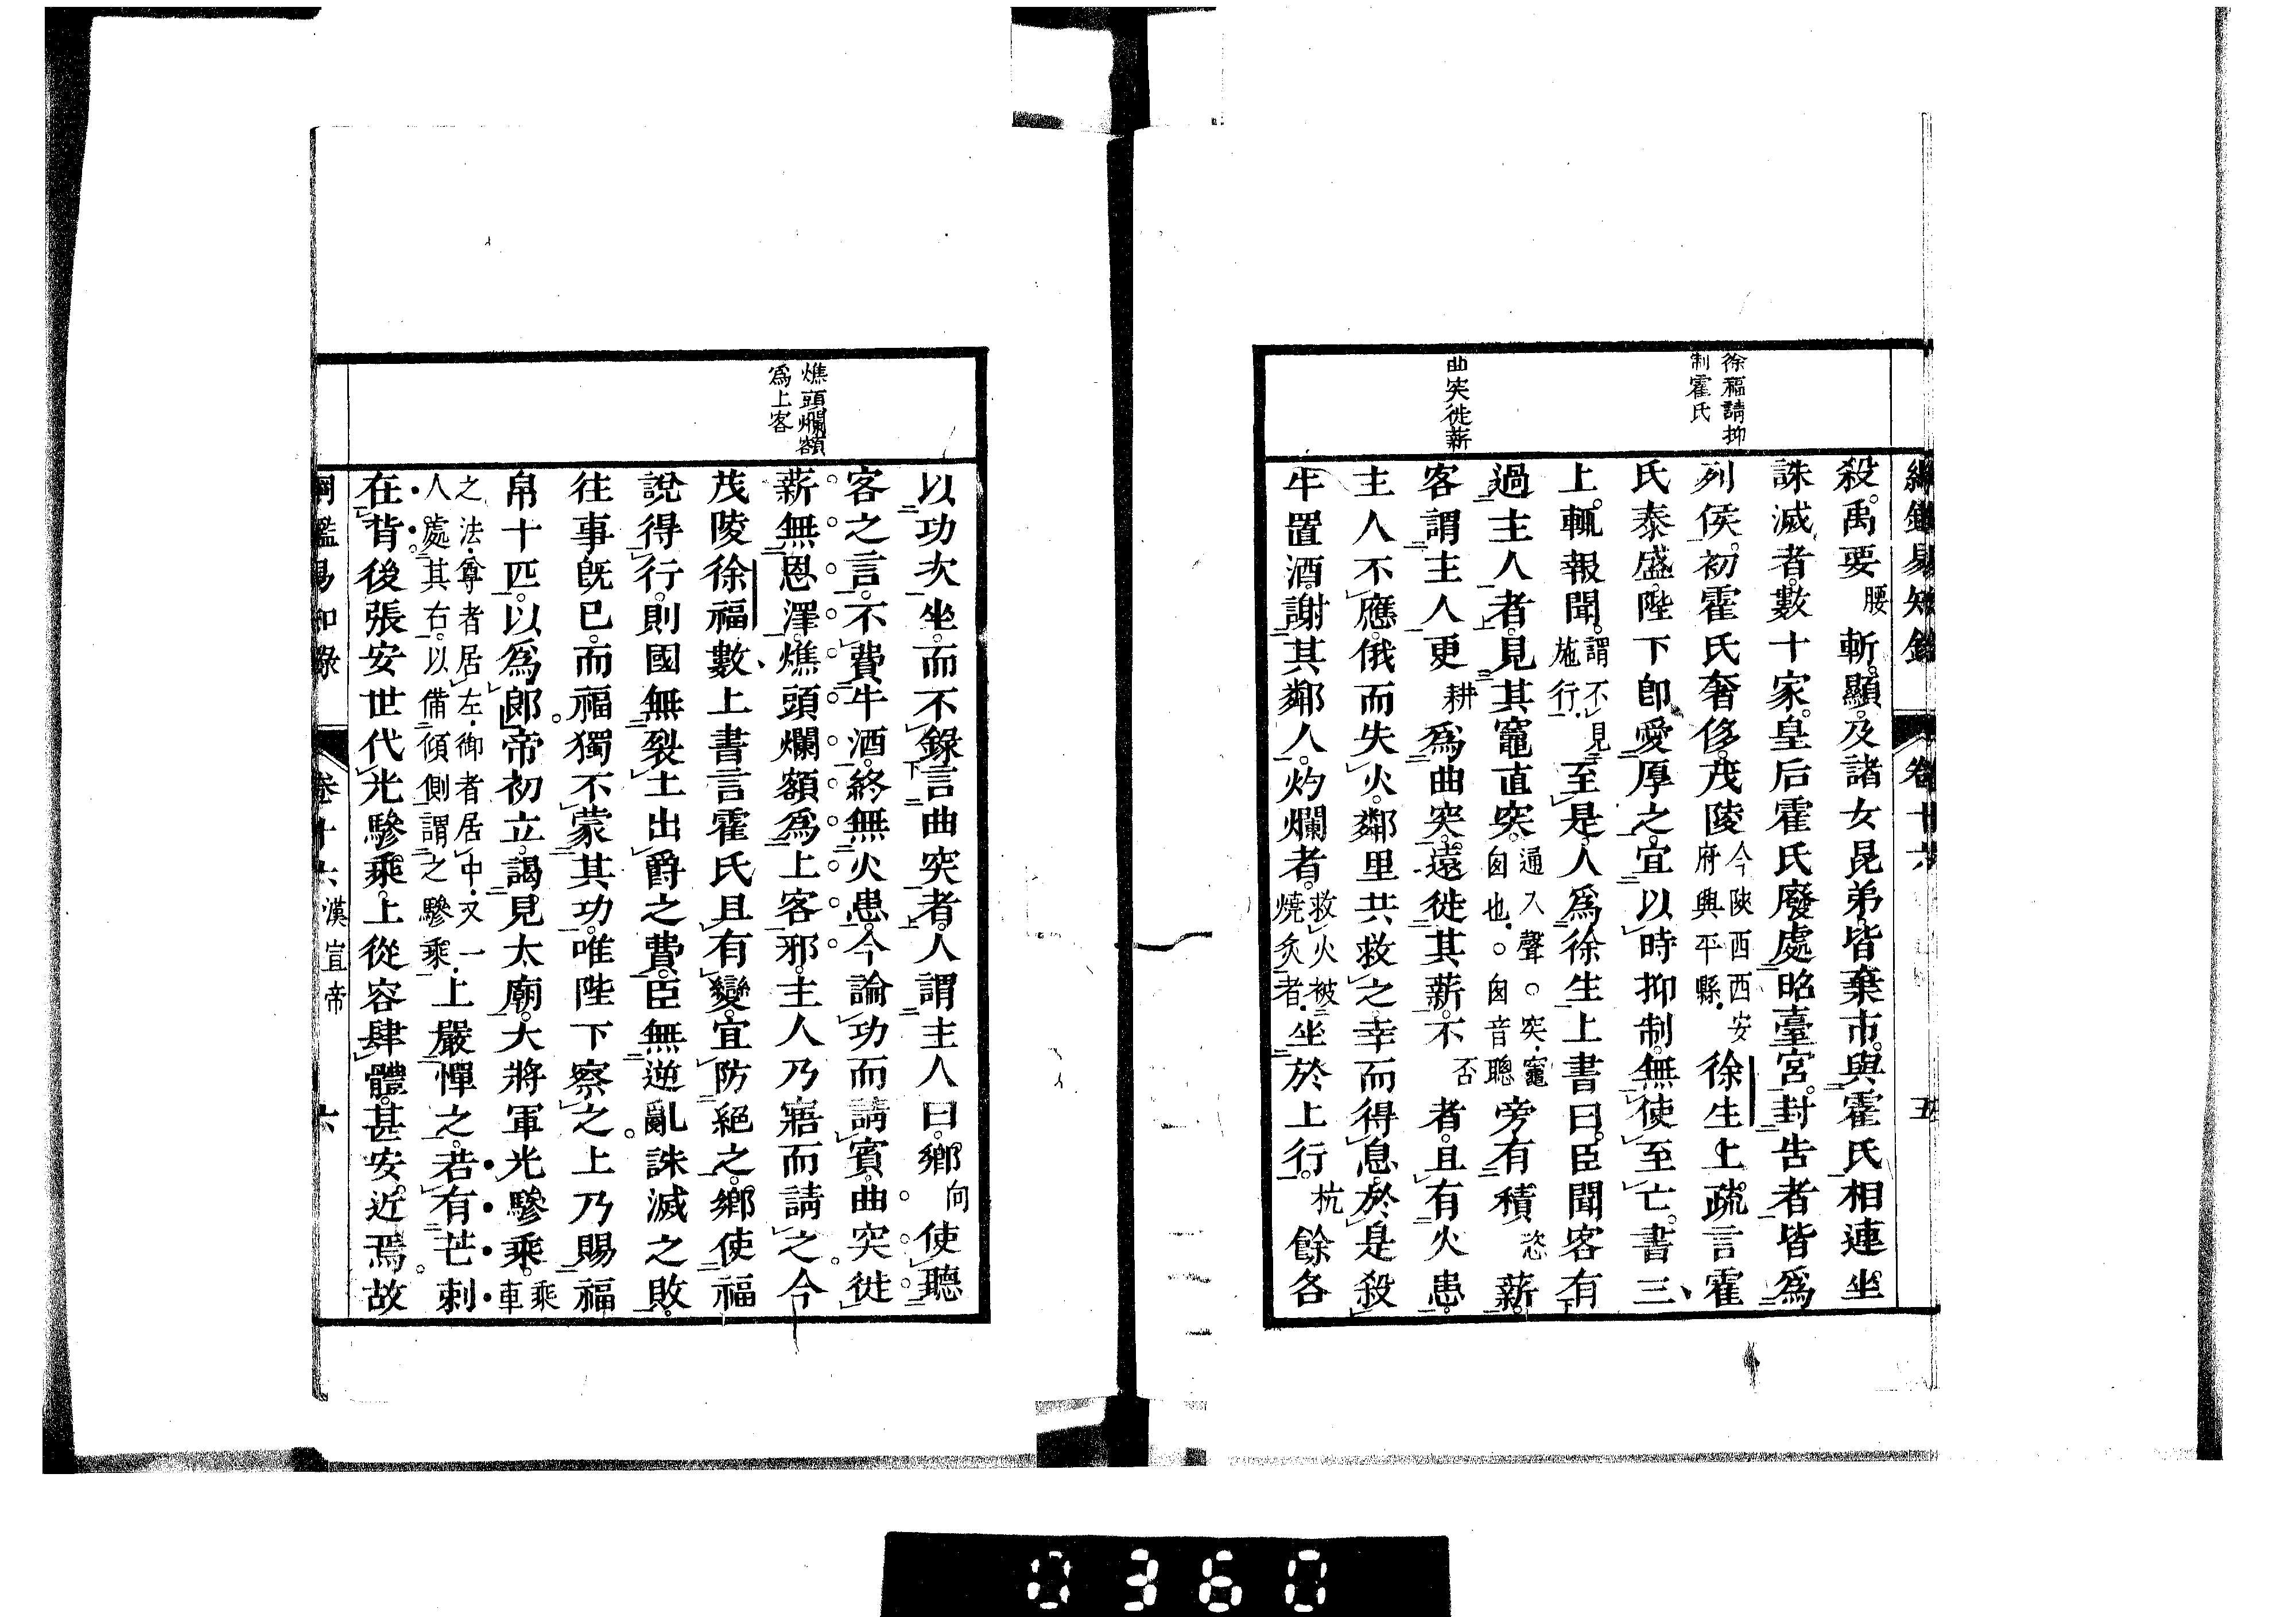 綱鑑易知錄 卷十六 五
徐福請抑
制霍氏
曲突徙薪
殺。禹要腰斬。顯。及諸女昆弟。皆棄市。與霍氏相連。坐
誅滅者。數十家。皇后霍氏廢處昭臺宮。封告者皆爲
列侯。初霍氏奢侈。茂陵今陝西西安府興平縣。徐生上疏。言霍
氏泰盛。陛下卽愛厚之。宜以時抑制。無使至亡。書三
上。輒報聞。謂不見施行。至是。人爲徐生上書曰。臣聞客有
過主人者。見其竈直突。通入聲。突。竈囪也。囪音聰旁有積恣薪。
客謂主人更耕爲曲突。遠徙其薪。不否者。且有火患。
主人不應。俄而失火。鄰里共救之。幸而得息。於是殺
牛置酒。謝其鄰人。灼爛者。救火被燒灸者。坐於上行。杭餘各
燋頭爛額
爲上客
以功次坐。而不錄言曲突者。人謂主人曰。鄉向使聽
客之言。不費牛酒。終無火患。今論功而請賓。曲突徙
薪無恩澤。燋頭爛額爲上客邪。主人乃寤而請之。今
茂陵徐福數上書言霍氏且有變。宜防絕之。鄉使福
說得行。則國無裂土出爵之費。臣無逆亂誅滅之敗。
往事旣已。而福獨不蒙其功。唯陛下察之。上乃賜福
帛十匹。以爲郞。帝初立。謁見太廟。大將軍光驂乘。乘車
之法。尊者居左。御者居中。又一人處其右。以備傾側。謂之驂乘。上嚴憚之。若有芒刺
在背。後張安世代光驂乘。上從容肆體。甚安近焉。故
綱鑑易知錄 卷十六 漢宣帝 六
0360